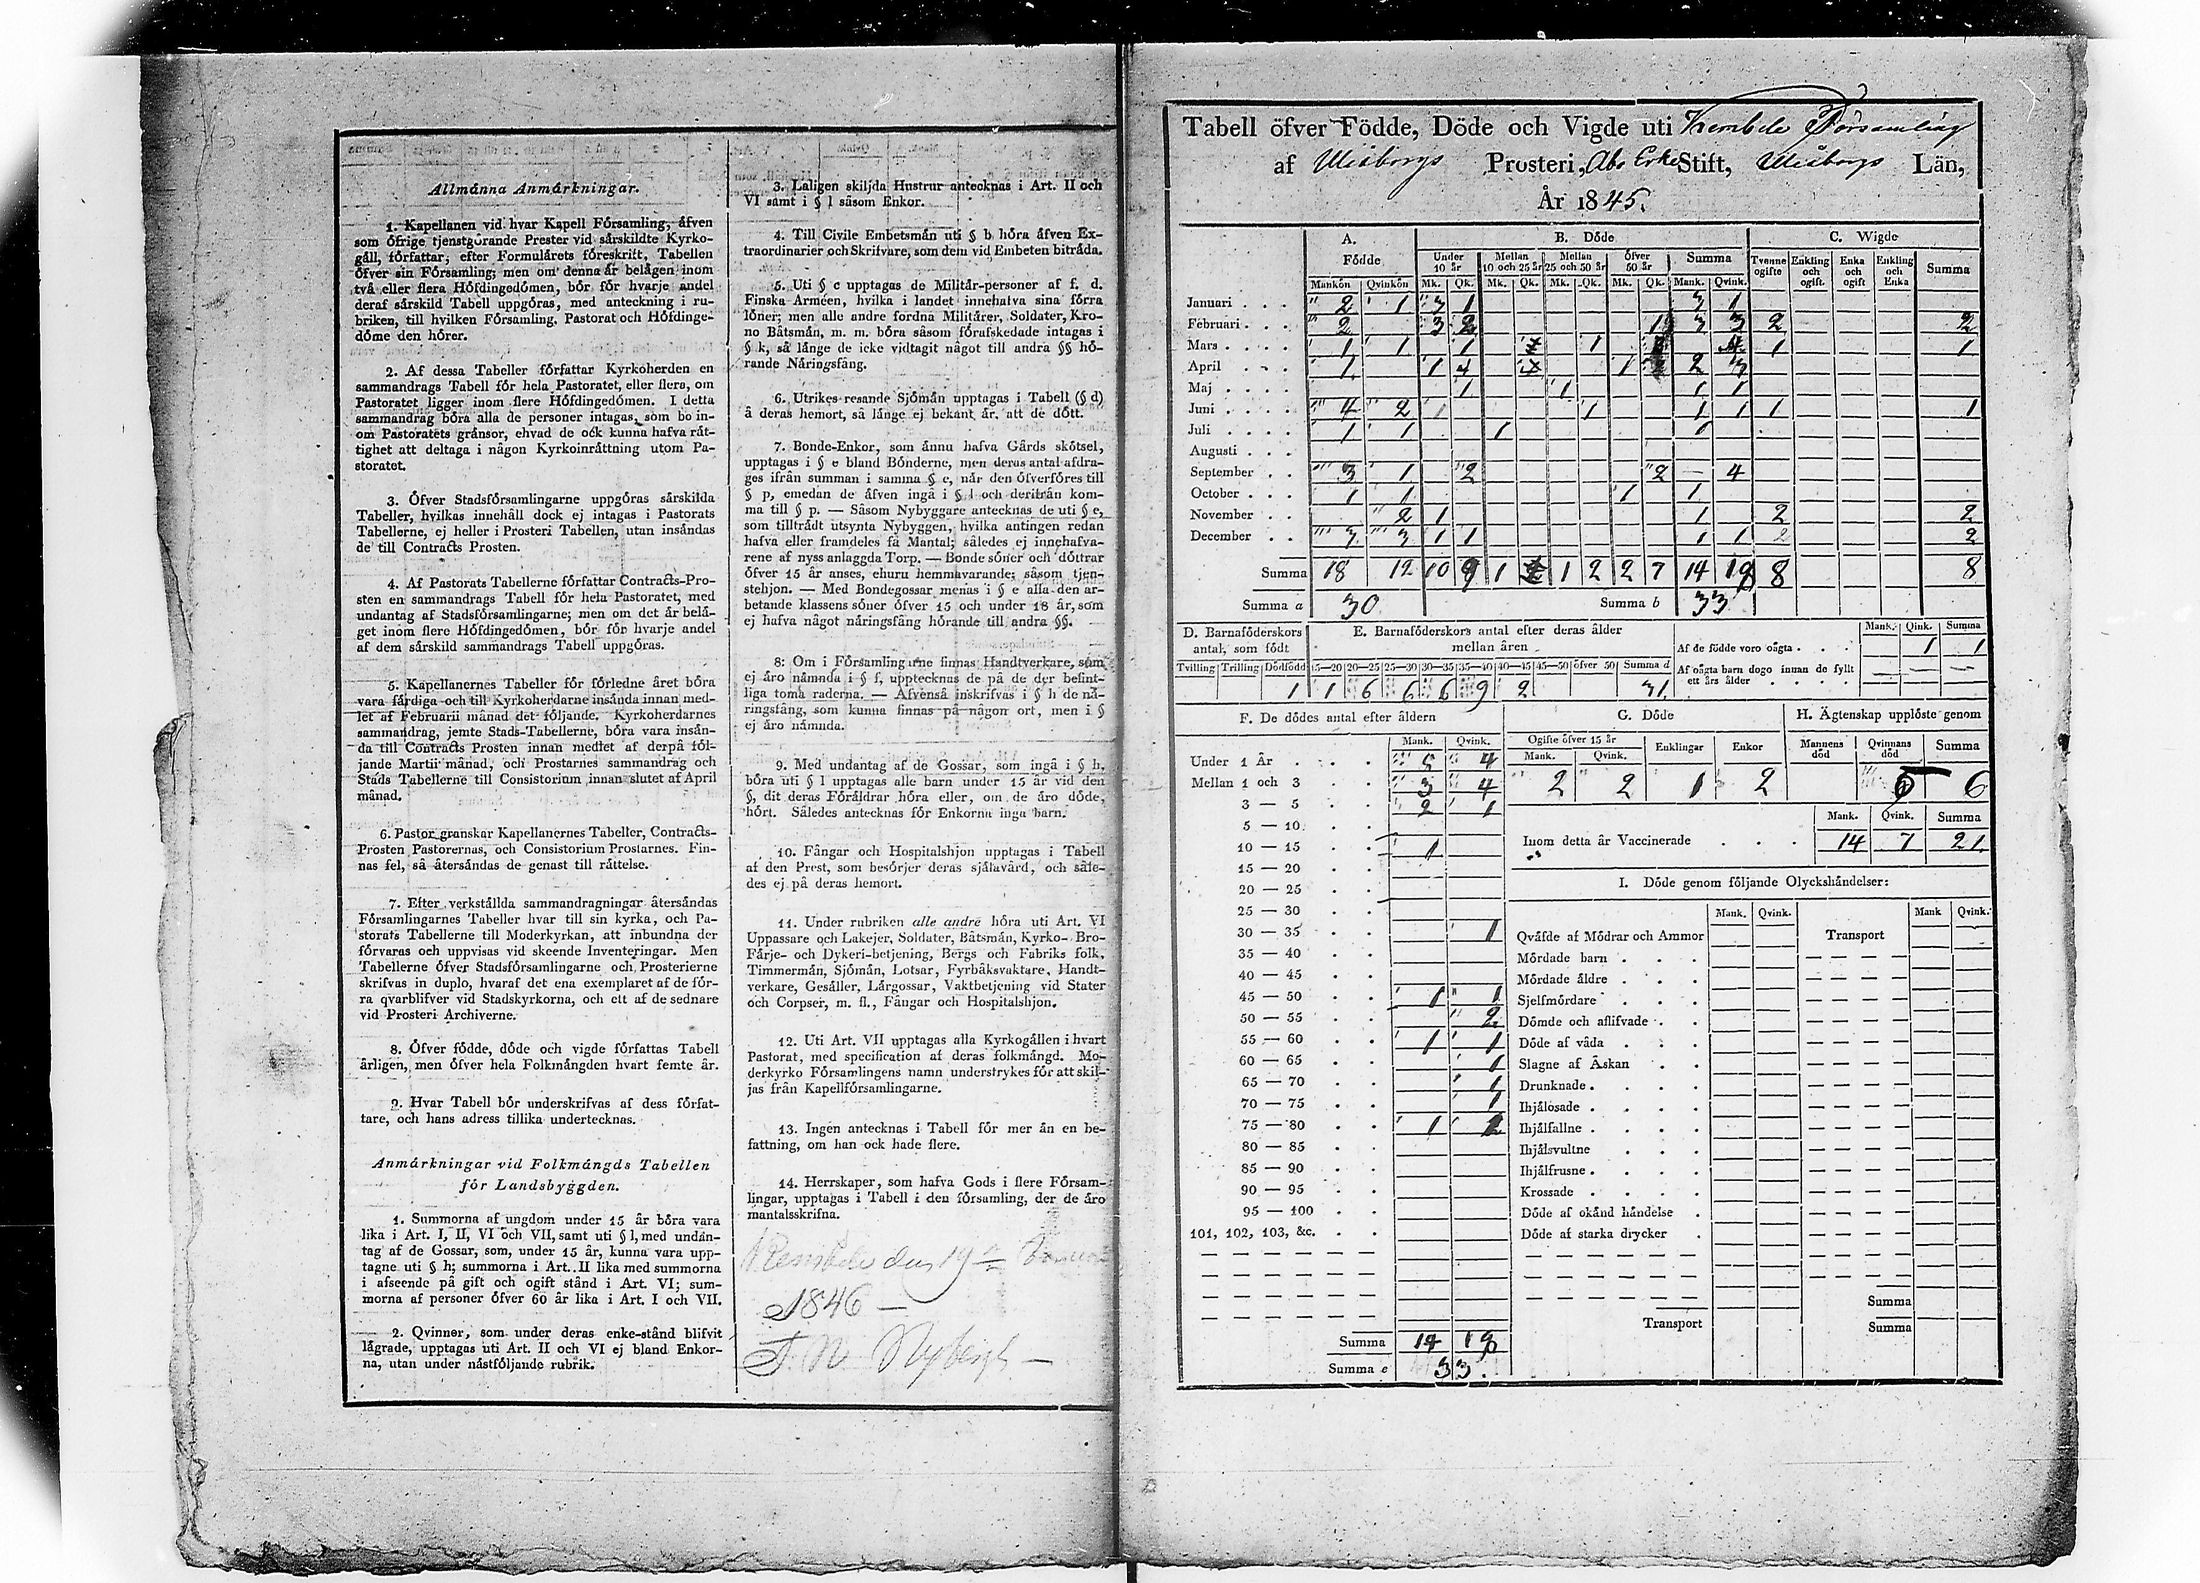 Allmänna Anmärkningar.
1. Kapellanen vid hvar Kapell Församling, äfven
som öfrige tjenstgörande Prester vid särskildte Kyrko-
gäll, författar, efter Formulärets föreskrift, Tabellen
öfver sin Församling; men om denna är belägen inom
två eller flera Höfdingedömen, bör för hvarje andel
deraf särskild Tabell uppgöras, med anteckning i ru-
briken, till hvilken Församling, Pastorat och Höfdinge-
döme den hörer.
2. Af dessa Tabeller författar Kyrkoherden en
sammandrags Tabell för hela Pastoratet, eller flera, om
Pastoratet ligger inom flere Höfdingedömen. I detta
sammandrag böra alla de personer intagas, som bo in-
om Pastoratets gränsor, ehvad de ock kunna hafva rät-
tighet att deltaga i någon Kyrkoinrättning utom Pa-
storatet.
3. Öfver Stadsförsamlingarne uppgöras särskilda
Tabeller, hvilkas innehåll dock ej intages i Pastorats
Tabellerne, ej heller i Prosteri Tabellen, utan insändas
de till Contracts Prosten.
4. Af Pastorats Tabellerne författar Contracts-Pro-
sten en sammandrags Tabell för hela Pastoratet, med
undantag af Stadsförsamlingarne; men om det är belä-
get inom flere Höfdingedömen, bör för hvarje andel
af dem särskild sammandrags Tabell uppgöras.
5. Kapellanernes Tabeller för förledne året böra
vara färdiga och till Kyrkoherdarne insända innan med-
let af Februarii månad det följande. Kyrkoherdarnes
sammandrag, jemte Stads-Tabellerne, böra vara insän-
da till Contracts Prosten innan medlet af derpå föl-
jande Martii månad, och Prostarnes sammandrag och
Stads Tabellerne till Consistorium innan slutet af April
månad.
6. Pastor granskar Kapellanernes Tabeller, Contracts-
Prosten Pastorernas, och Consistorium Prostarnes. Fin-
nas fel, så återsändas de genast till rättelse.
7. Efter verkställda sammandragningar återsändas
Församlingarnes Tabeller hvar till sin kyrka, och Pa-
storats Tabellerne till Moderkyrkan, att inbundna der
förvaras och uppvisas vid skeende Inventeringar. Men
Tabellerne öfver Stadsförsamlingarne och Prosterierne
skrifvas in duplo, hvaraf det ena exemplaret af de för-
ra qvarblifver vid Stadskyrkorna, och ett af de sednare
vid Prosteri Archiverne.
8. Öfver födde, döde och vigde författas Tabell
årligen, men öfver hela Folkmängden hvart femte år.
9. Hvar Tabell bör underskrifvas af dess författ-
tare, och hans adress tillika undertecknas.
Anmärkningar vid Folkmängds Tabellen
för Landsbyggden.
1. Summorna af ungdom under 15 år böra vara
lika i Art. I, II, VI och VII, samt uti § l, med undan-
tag af de Gossar, som, under 15 år, kunna vara upp-
tagne uti § h; summorna i Art. II lika med summorna
i afseende på gift och ogift stånd i Art. VI; sum-
morna af personer öfver 60 år lika i Art. I och VII.
2. Qvinner, som under deras enke-stånd blifvit
lägrade, upptagas uti Art. II och VI ej bland Enkor-
na, utan under nästföljande rubrik.
3. Laligen skiljda Hustrur antecknas i Art. II och
VI samt i § l såsom Enkor.
4. Till Civile Embetsmän uti § b höra äfven Ex-
traordinarier och Skrifvare, som dem vid Embeten biträda.
5. Uti § c upptagas de Militär-personer af f. d.
Finska Arméen, hvilka i landet innehafva sina förra
löner; men alle andre fordna Militärer, Soldater, Kro-
no Båtsmän, m. m. böra såsom förafskedade intagas i
§ k, så länge de icke vidtagit något till andra §§ hö-
rande Näringsfång.
6. Utrikes resande Sjömän upptagas i Tabell (§ d)
å deras hemort, så länge ej bekant är, att de dött.
7. Bonde-Enkor, som ännu hafva Gårds skötsel,
upptagas i § e bland Bönderne, men deras antal afdra-
ges ifrån summan i samma § e, når den öfverföres till
§ p, emedan de äfven ingå i § l och derifrån kom-
ma till § p. — Såsom Nybyggare antecknas de uti § e,
som tillträdt utsynta Nybyggen, hvilka antingen redan
hafva eller framdeles få Mantal; således ej innehafva-
rene af nyss anlaggda Torp. — Bonde söner och döttrar
öfver 15 år anses, ehuru hemmavarande, såsom tjen-
stehjon. — Med Bondegossar menas i § e alla den ar-
betande klassens söner öfver 15 och under 18 år, som
ej hafva något näringsfång hörande till andra §§.
8: Om i Församlingarne finnas Handtverkare, som
ej äro nämnda i § f, upptecknas de på de der befint-
liga toma raderna. — Äfvenså inskrifvas i § h de nä-
ringsfång, som kunna finnas på någon ort, men i §
ej äro nämnda.
9. Med undantag af de Gossar, som ingå i § h,
böra uti § l upptagas alle barn under 15 år vid den
§, dit deras Föräldrar höra eller, om de äro döde,
hört. Således antecknas för Enkorna inga barn.
10. Fångar och Hospitalshjon upptagas i Tabell
af den Prest, som besörjer deras själavård, och såle-
des ej på deras hemort.
11. Under rubriken alle andre höra uti Art. VI
Uppassare och Lakejer, Soldater, Båtsmän, Kyrko- Bro-
Färje- och Dykeri-betjening, Bergs och Fabriks folk,
Timmermän, Sjömän, Lotsar, Fyrbåksvaktare, Handt-
verkare, Gesäller, Lärgossar, Vaktbetjening vid Stater
och Corpser, m. fl., Fångar och Hospitalshjon.
12. Uti Art. VII upptagas alla Kyrkogällen i hvart
Pastorat, med specification af deras folkmängd. Mo-
derkyrko Församlingens namn understrykes för att skil-
jas från Kapellförsamlingarne.
13. Ingen antecknas i Tabell för mer än en be-
fattning, om han ock hade flere.
14. Herrskaper, som hafva Gods i flere Försam-
lingar, upptagas i Tabell i den församling, der de äro
mantalsskrifna.
den 19
1846 —
Nybergh —
Tabell öfver Födde, Döde och Vigde uti Församling
af Prosteri, Åbo Erke Stift, Län,
År 1845.
A. Födde B. Döde C. Wigde
Under 10 år Mellan 10 och 25 år Mellan 25 och 50 år Öfver 50 år Summa Tvenne ogifte Enkling och ogift. Enka och ogift Enkling och Enka Summa
Mankön Qvinkön Mk. Qk. Mk. Qk. Mk. Qk. Mk. Qk. Mank. Qvink.
Januari 2 1 3 1 3 1
Februari 2 3 2 1 3 3 2 2
Mars 1 1 1 1 4 1 1
April 1 1 4 1 2 3
Maj 1 1 1 1
Juni 4 2 1 1 1 1 1 1
Juli 1 1 1 1
Augusti
September 3 1 2 2 — 4
October 1 1 1 1
November 2 1 1 2 2
December 3 3 1 1 1 1 2 2
Summa 18 12 10 9 1 1 2 2 7 14 19 8 8
Summa a 30 Summa b 33
D. Barnaföderskors antal, som födt
Tvilling Trilling Dödfödd
1
E. Barnaföderskors antal efter deras ålder mellan åren
15—20 20—25 25—30 30—35 35—40 40—45 45—50 öfver 50 Summa d
1 6 6 6 9 2 31.
Mank. Qink. Summa
Af de födde voro oägta 1 1
Af oägta barn dogo innan de fyllt
ett års ålder — —
F. De dödes antal efter åldern
Mank. Qvink.
Under 1 År 5 4
Mellan 1 och 3 3 4
3 — 5 2 1
5 — 10
10 — 15 1
15 — 20
20 — 25
25 — 30
30 — 35 1
35 — 40
40 — 45
45 — 50 1 1
50 — 55 2
55 — 60 1 1
60 — 65 1
65 — 70 1
70 — 75 1
75 — 80 1 2
80 — 85
85 — 90
90 — 95
95 — 100
101, 102, 103, &c.
Summa 14 19
Summa e 33.
G. Döde
Ogifte öfver 15 år Enklingar Enkor
Mank. Qvink.
2 2 1 2
H. Ägtenskap upplöste genom
Mannens död Qvinnans död Summa
6 6
Mank. Qvink. Summa
Inom detta år Vaccinerade 14 7 21.
I. Döde genom följande Olyckshändelser:
Mank. Qvink. Mank Qvink.
Qväfde af Mödrar och Ammor Transport
Mördade barn
Mördade äldre
Sjelfmördare
Dömde och aflifvade
Döde af våda
Slagne af Åskan
Drunknade
Ihjälösade
Ihjälfallne
Ihjälsvultne
Ihjälfrusne
Krossade
Döde af okänd händelse
Döde af starka drycker
Summa
Transport Summa